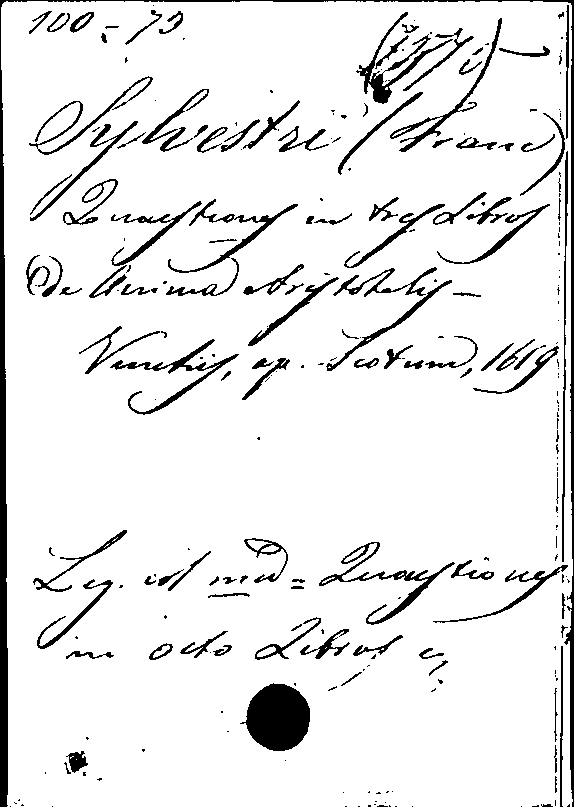 100 = 73
Sylvestri (Franc)
Quaestiones in tres Libros
De Anima Aristotelis -
Venetiis, ap. Scotum, 1619
Leg. col med = Quaestiones
in octo Libros